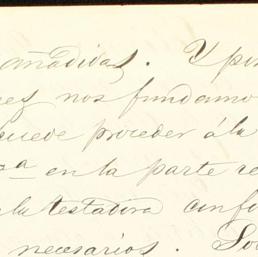 añadidas. Y por
nos fundamo
puede proceder á la
en la parte re
la testadora confo
necesarios. So